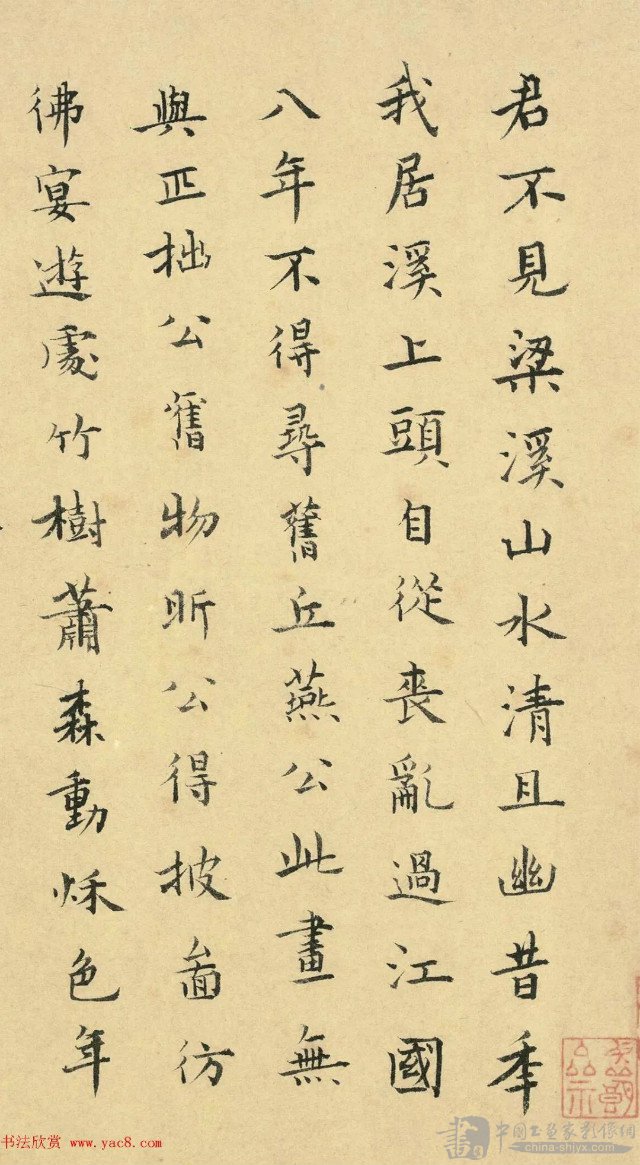 君不見梁溪山水清且幽昔秊
我居溪上頭自從喪亂過江國
八年不得尋舊丘燕公此畫無
與匹拙公舊物昕公得披啚彷
彿宴遊處竹樹蕭森動秌色年
书法欣赏 www.yac8.com
china-shjyx.com